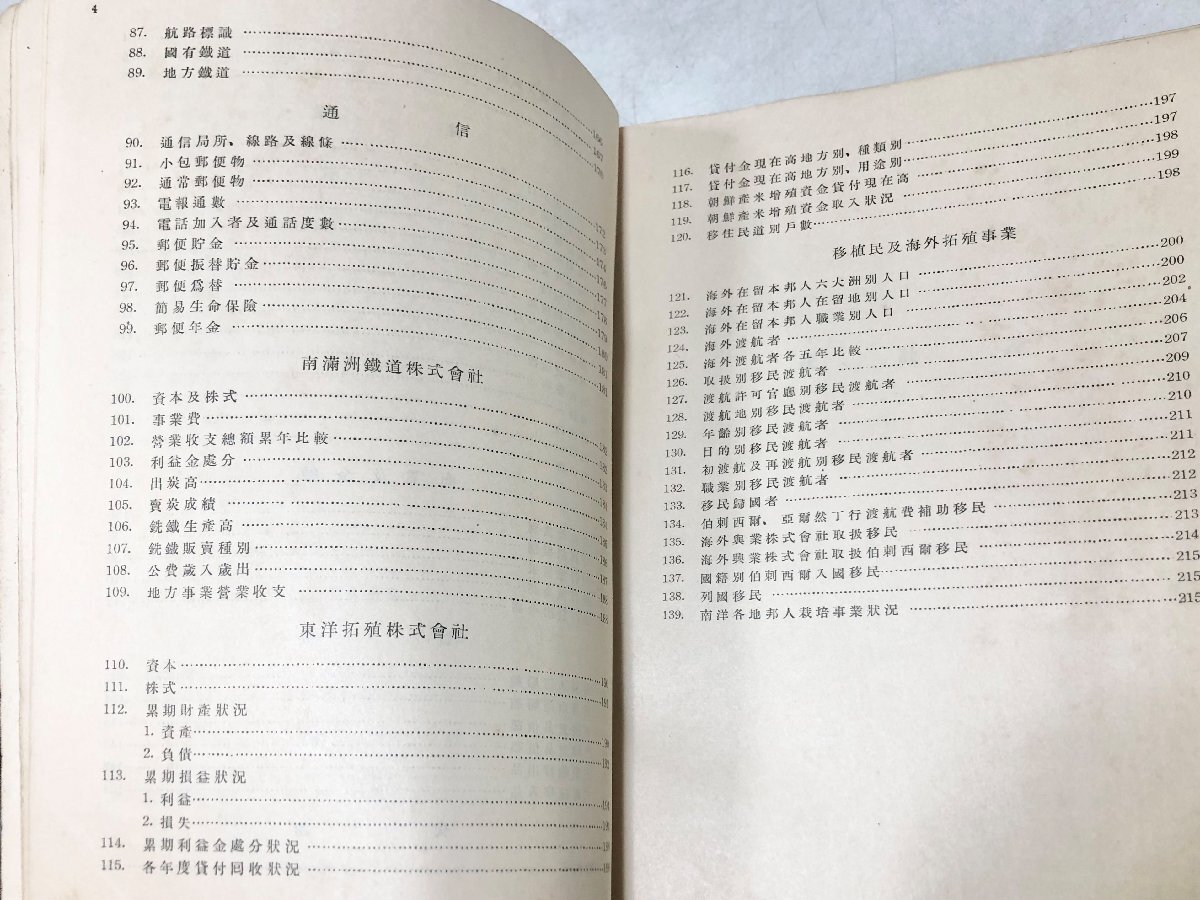 4
87. 航路標識
88. 國有鐵道
89. 地方鐵道
通信
90. 通信局所、線路及線條
91. 小包郵便物
92. 通常郵便物
93. 電報通數
94. 電話加入者及通話度數
95. 郵便貯金
96. 郵便振替貯金
97. 郵便爲替
98. 簡易生命保險
99. 郵便年金
南滿洲鐵道株式會社
100. 資本及株式
101. 事業費
102. 營業收支總額累年比較
103. 利益金處分
104. 出炭高
105. 賣炭成績
106. 銑鐵生產高
107. 銑鐵販賣種別
108. 公費歲入歲出
109. 地方事業營業收支
東洋拓殖株式會社
110. 資本
111. 株式
112. 累期財產狀況
1. 資產
2. 負債
113. 累期損益狀況
1. 利益
2. 損失
114. 累期利益金處分狀況
115. 各年度貸付回收狀況
116. 貸付金現在高地方別、種類別 197
117. 貸付金現在高地方別、用途別 197
118. 朝鮮產米增殖資金貸付現在高 198
119. 朝鮮產米增殖資金收入狀況 199
120. 移住民道別戶數 198
移植民及海外拓殖事業
121. 海外在留本邦人六大洲別人口 200
122. 海外在留本邦人在留地別人口 200
123. 海外在留本邦人職業別人口 202
124. 海外渡航者 204
125. 海外渡航者各五年比較 206
126. 取扱別移民渡航者 207
127. 渡航許可官廳別移民渡航者 209
128. 渡航地別移民渡航者 210
129. 年齡別移民渡航者 210
130. 目的別移民渡航者 211
131. 初渡航及再渡航別移民渡航者 211
132. 職業別移民渡航者 212
133. 移民歸國者 212
134. 伯剌西爾、亞爾然丁行渡航費補助移民 213
135. 海外興業株式會社取扱移民 213
136. 海外興業株式會社取扱伯剌西爾移民 214
137. 國籍別伯剌西爾入國移民 215
138. 列國移民 215
139. 南洋各地邦人栽培事業狀況 215